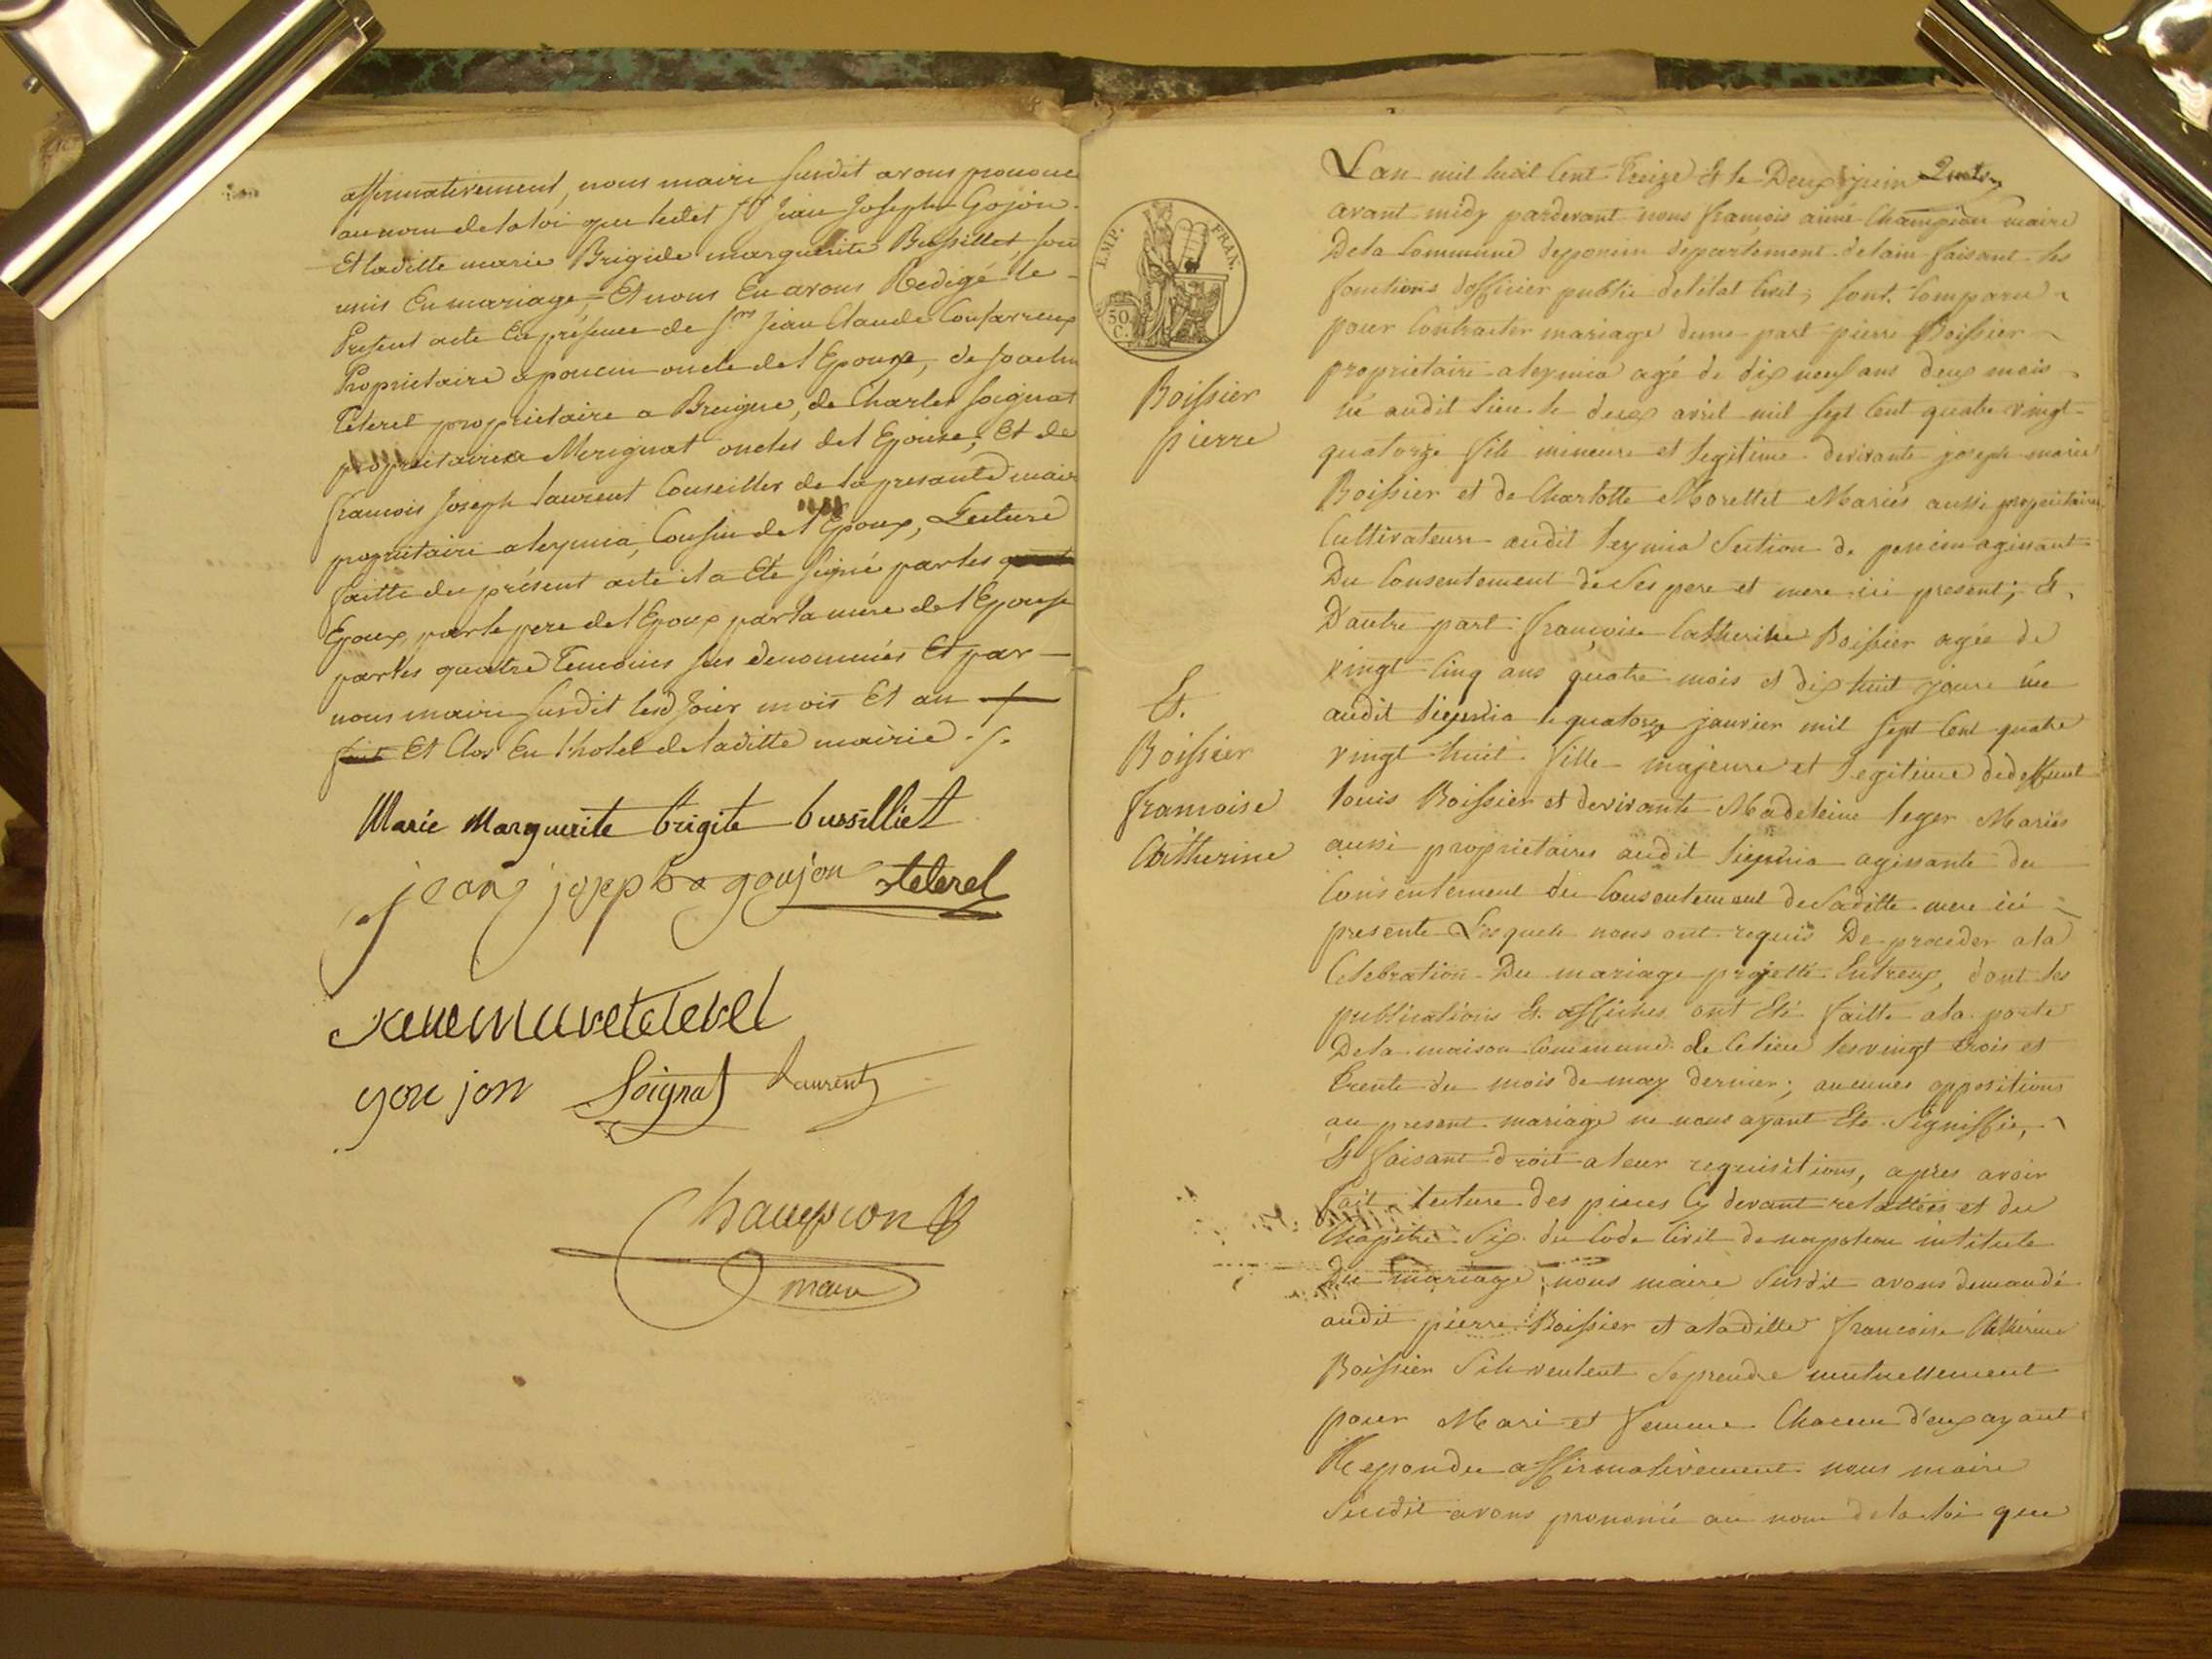 affirmativement, nous maire susdit avons prononcé
au nom de la loi que ledit Sr Jean Joseph Gojon
Et laditte marie Brigide marguerite Bussillet, sont
unis En mariage, Et nous En avons Redigé le
Present acte En présence de Srs Jean Claude
Propriétaire a poncin oncle de l'Epouse, de Joachim
Teterel propriétaire a Breigne, de Charles Soignat
propriétaire a Merignat oncles de l'Epouse; Et de
francois Joseph laurent Conseiller de la presante mairie
propriétaire a leymia, Cousin de l'Epoux, Lecture
faitte du présent acte il a Eté signé par les
Epoux, par le pere de l'Epoux par la mere de l'Epouse
par les quatre Temoins sus denommés Et par
nous maire susdit lesd Jour mois Et an
fait Et Clos En l'hotel de laditte mairie ./.
Marie Marguerite brigite bussilliet
jean joseph goujon teterel
goujon Soignat Laurent
Champion
maire
IMP. FRAN.
50 C.
Boissier
pierre
Et.
Boissier
francoise
Catherine
L'an mil huit Cent Treize Et le Deux juin
avant midy pardevant nous françois aimé Champion maire
De la Commune de poncin departement de lain faisant les
fonctions d'officier public de l'état Civil, sont Comparu
pour Contracter mariage d'une part pierre Boissier
proprietaire a leymia agé de dix neuf ans deux mois
né audit lieu le deux avril mil sept Cent quatre vingt
quatorze fils mineure et legitime de vivante joseph marie
Boissier et de Charlotte Morettet Mariés aussi proprietaires
Cultivateurs audit leymia Section de poncin agissant
Du Consentement de Ses pere et mere ici present; Et
D'autre part françoise Catherine Boissier agée de
vingt Cinq ans quatre mois et dix huit jours née
audit leymia le quatorze janvier mil sept Cent quatre
vingt huit fille majeure et legitime de deffunt
louis Boissier et de vivante Madeleine leger Mariés
aussi proprietaires audit leymia agissante du
Consentement du Consentement de Saditte mere ici
presente Lesquels nous ont requis De proceder a la
Celebration Du mariage projetté Entreux, dont les
publications Et affiches ont Eté faitte a la porte
De la maison Commune de Ce lieu les vingt trois et
trente du mois de may dernier; aucunes oppositions
au present mariage ne nous ayant Ete Signiffie,
Et faisant droit a leur requisitions, apres avoir
fait lecture des pieces Cy devant relattées et du
Chapitre Six du Code Civil de napoleon intitule
Du mariage, nous maire Susdit avons demandé
audit pierre Boissier et a laditte francoise Catherine
Boissier Sils veulent Se prendre mutuellement
pour Mari et femme Chacun d'eux ayant
Repondu affirmativement nous maire
Susdit avons prononcé au nom de la loi que